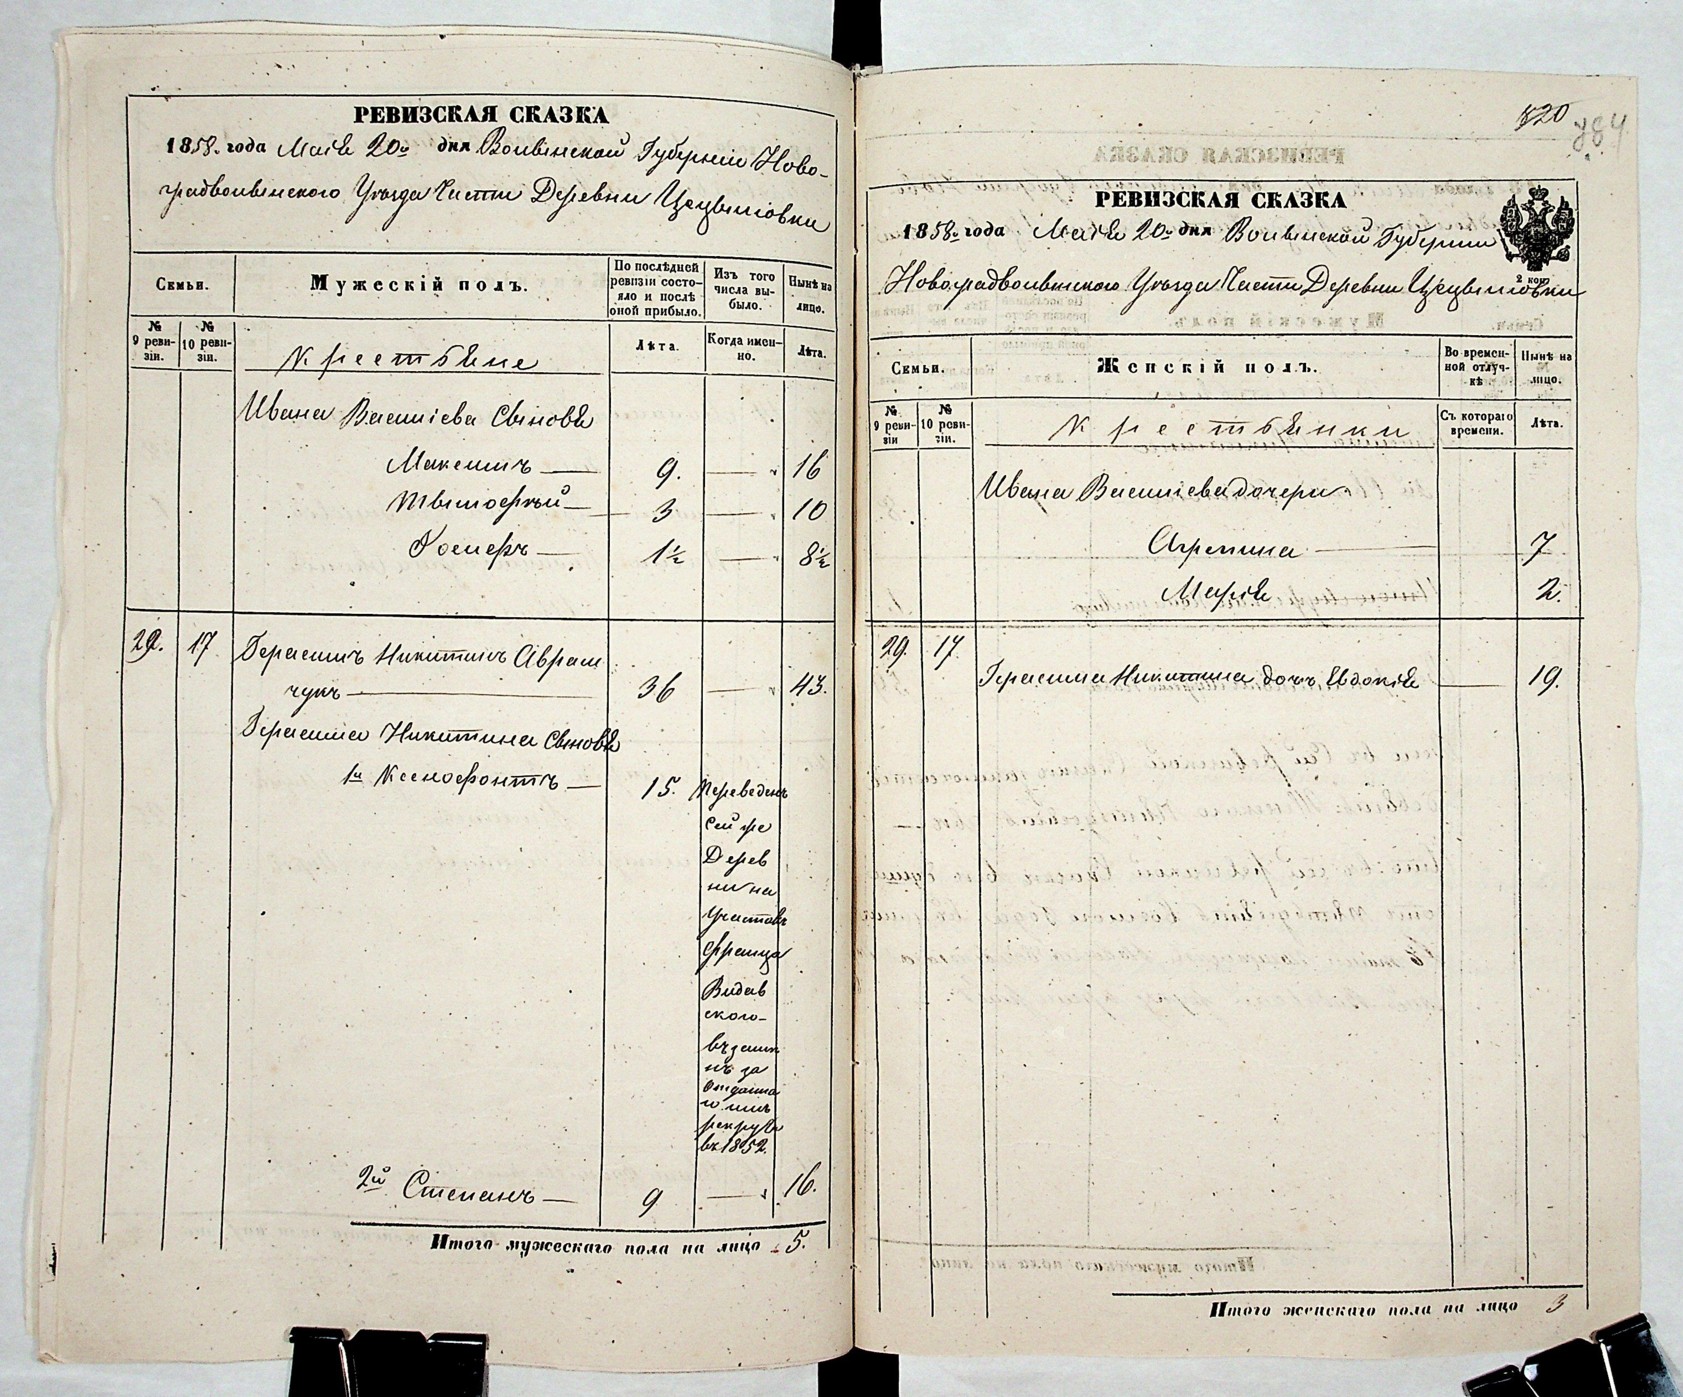 РЕВИЗСКАЯ СКАЗКА
1858. года Маія 20го дня Волынской Губерніи Ново-
градволынского Уѣзда Части Деревни Цецыліовки
Семьи.
Мужескій полъ.
По послѣдней ревизіи состояло и послѣ оной прибыло.
Изъ того числа выбыло.
Нынѣ на лицо.
№ 9 ревизіи.
№ 10 ревизіи.
Крестьяне
Лѣта.
Когда именно.
Лѣта.
Ивана Василіева Сыновья
Максимъ — 9. — „ 16
Тымофѣй — 3 — „ 10
1½ — „ 8½
29. 17 Герасимъ Никитинъ Аврам
чукъ — 36 — „ 43.
Герасима Никитина Сыновья
1й Ксенофонтъ — 15. Переведенъ
сей же
Дерев
ни на
участокъ
Франца
Видав
ского
въ замѣ
нъ за
отданна
го имъ
рекрута
въ 1852.
2й Степанъ — 9 — „ 16.
Итого мужескаго пола на лицо 5.
820
784
РЕВИЗСКАЯ СКАЗКА
1858го года Маія 20го дня Волынской Губерніи
2 коп.
Новоградволынского Уѣзда Части Деревни Цецыліовки
Семьи.
Женскій полъ.
Во временной отлучкѣ
Нынѣ на лицо.
№ 9 ревизіи
№ 10 ревизіи.
Крестьянки
Съ котораго времени.
Лѣта.
Ивана Василіева дочери
Агрепина — 7
Марія 2.
29. 17.
Герасима Никитина дочь Евдокія — 19.
Итого женскаго пола на лицо 3